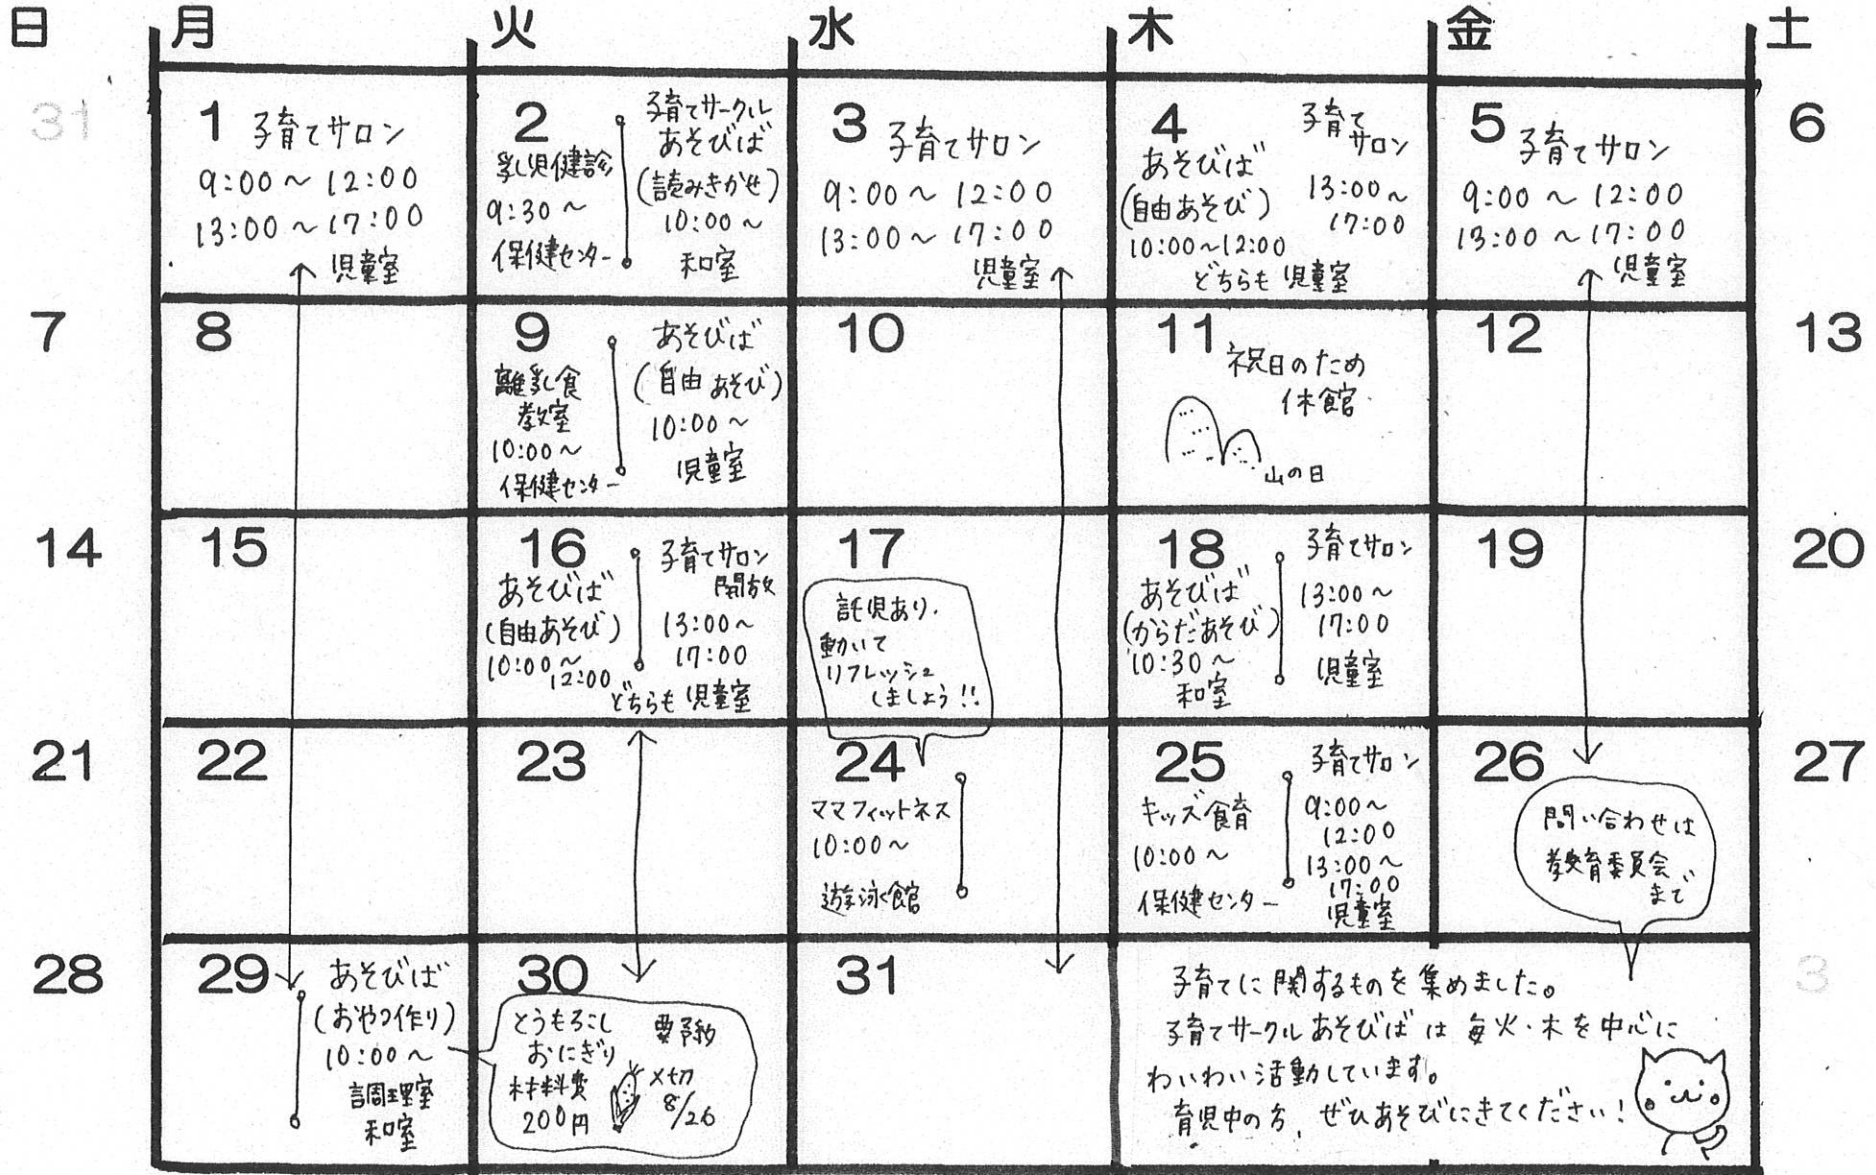 日 月 火 水 木 金 土
31
1 子育てサロン
9:00～12:00
13:00～17:00
児童室
2
乳児健診
9:30～
保健センター
子育てサークル
あそびば
(読みきかせ)
10:00～
和室
3 子育てサロン
9:00～12:00
13:00～17:00
児童室
4
あそびば
(自由あそび)
10:00～12:00
子育て
サロン
13:00～
17:00
どちらも 児童室
5 子育てサロン
9:00～12:00
13:00～17:00
児童室
6
7
8
9
離乳食
教室
10:00～
保健センター
あそびば
(自由あそび)
10:00～
児童室
10
11 祝日のため
休館
山の日
12
13
14
15
16
あそびば
(自由あそび)
10:00～
12:00
子育てサロン
開放
13:00～
17:00
どちらも 児童室
17
託児あり.
動いて
リフレッシュ
しましょう!!
18
あそびば
(からだあそび)
10:30～
和室
子育てサロン
13:00～
17:00
児童室
19
20
21
22
23
24
ママフィットネス
10:00～
遊泳館
25
キッズ食育
10:00～
保健センター
子育てサロン
9:00～
12:00
13:00～
17:00
児童室
26
問い合わせは
教育委員会
まで
27
28
29
あそびば
(おやつ作り)
10:00～
調理室
和室
30
とうもろこし
おにぎり
材料費
200円
要予約
〆切
8/26
31
子育てに関するものを集めました。
子育てサークルあそびばは毎火・木を中心に
わいわい活動しています。
育児中の方、ぜひあそびにきてください!
3